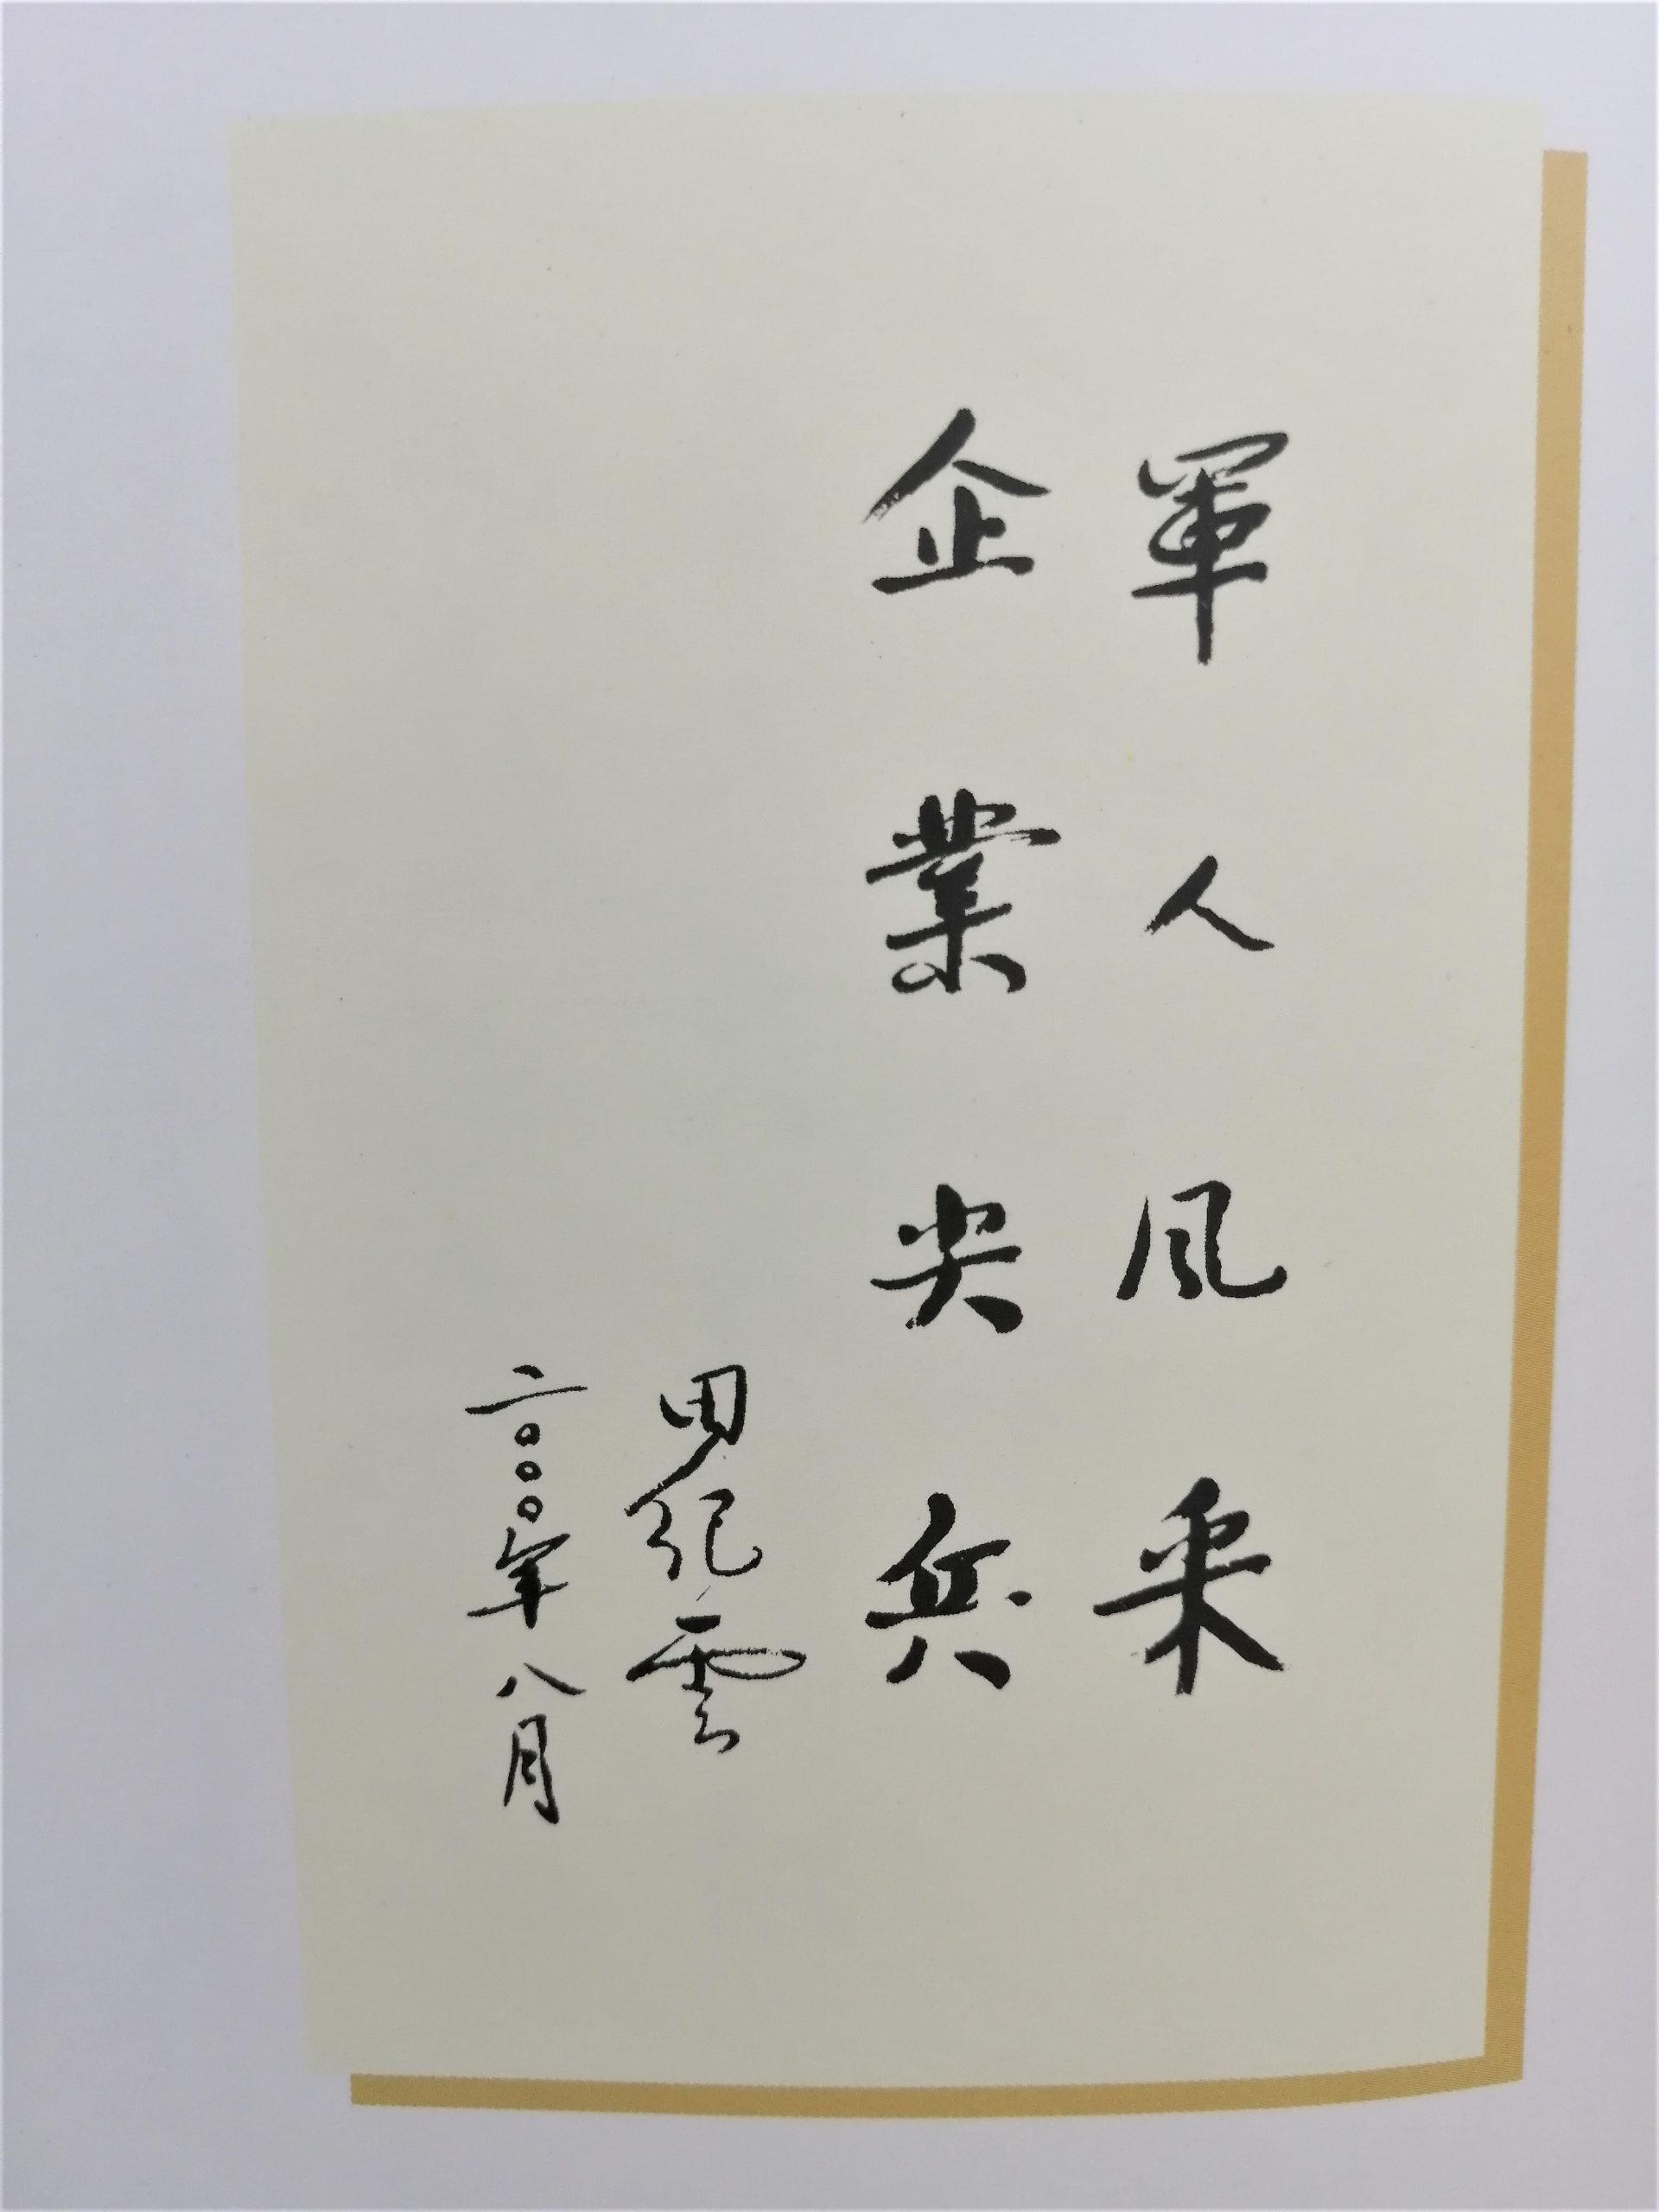 軍人风采
企業尖兵
田纪雲
二〇〇〇年八月